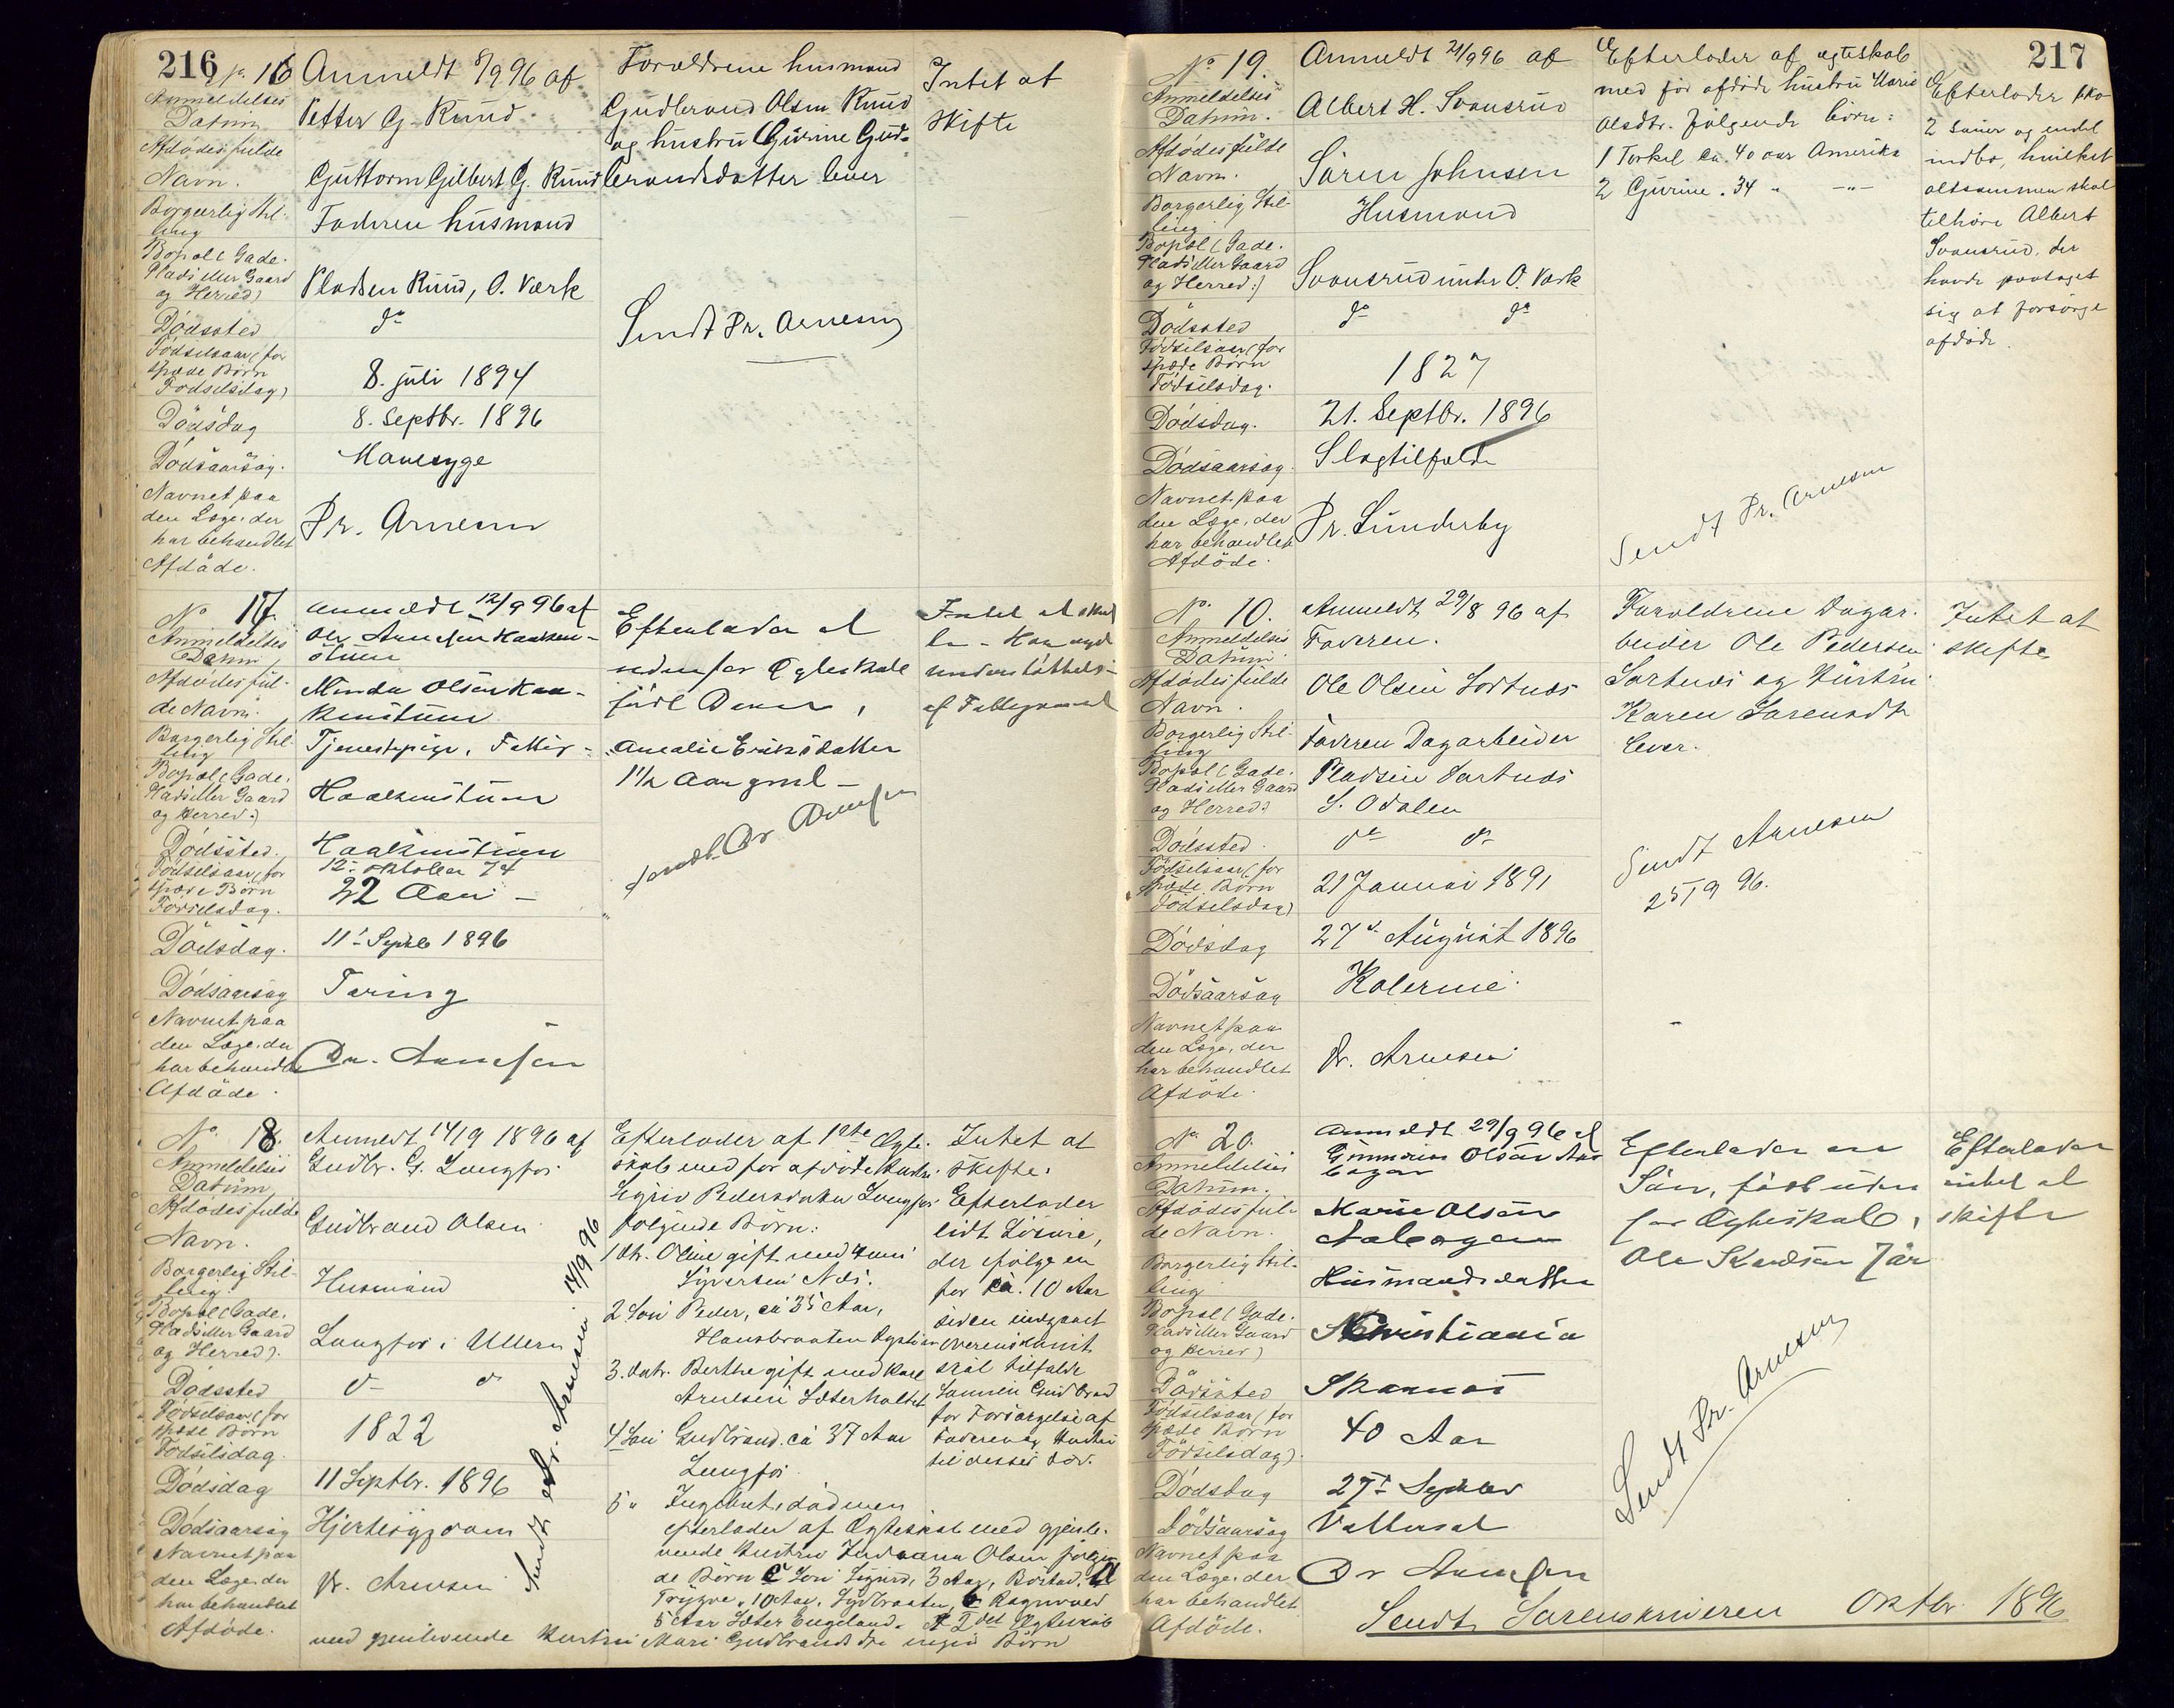 216
No. 16
Anmeldelses
Datum
Afdødes fulde
Navn.
Borgerlig Stil-
ling
Bopæl (Gade.
Plads eller Gaard
og Herred)
Dødssted
Fødselsaar (for
spæde Børn
Fødselsdag)
Dødsdag
Dødsaarsag.
Navnet paa
den Læge, der
har behandlet
Afdøde.
Anmeldt 8/9 96 af
Petter G. Ruud.
Guttorm Gilbert G. Ruud
Faderen husmand
Pladsen Ruud, O. Værk
do
8. juli 1894
8. Septbr. 1896
Mavesyge
Dr. Arnesen
Forældrene husmand
Gudbrand Olsen Ruud
og hustru Gurine Gud-
brandsdatter lever
Sendt Dr. Arnesen
Intet at
skifte
No 17.
Anmeldelses
Datum
Afdødes ful-
de Navn.
Borgerlig Stil-
ling
Bopæl (Gade.
Plads eller Gaard
og Herred.)
Dødssted.
Fødselsaar (for
spæde Børn
Fødselsdag.
Dødsdag.
Dødsaarsag
Navnet paa
den Læge, der
har behandlet
Afdøde.
Anmeldt 12/9 96 af
Ole Arnesen
Olsen
Tjenestepige, Fattig-
12. oktober 74
22 Aar -
11' Septb 1896
Tæring
Dr. Arnesen
Efterlader et
udenfor Ægteskab
født Barn,
Amalie Eriksdatter
1 1/2 Aar gml -
Sendt Dr Arnesen
Intet at
understøttelse
No 18.
Anmeldelses
Datum
Afdødes fulde
Navn.
Borgerlig Stil-
ling.
Bopæl (Gade.
Plads eller Gaard
og Herred).
Dødssted
Fødselsaar (for
spæde Børn
Fødselsdag.
Dødsdag
Dødsaarsag
Navnet paa
den Læge, der
har behandlet
Afdøde.
Anmeldt 14/9 1896 af
Gudbr. G. Langfos
Gudbrand Olsen
Husmand
Langfos i Ullern
do do
1822
11 Septbr. 1896
Hjertesygdom
Dr. Arnesen
Sendt Dr. Arnesen 14/9 96
Efterlader af 1ste Ægte-
skab med før afdøde Hustru
Sigrid Pedersdatter Langfos
følgende Børn:
1 Dtr. Oline gift med
Syversen Næs.
2 Søn Peder, ca 35 Aar,
Hansbraaten
3. Datr. Berthe gift med Karl
Arnesen Sæterholtet
4 Søn Gudbrand ca 37 Aar
Langfos
5 " Ingebret død men
efterlader af Ægteskab med gjenle-
vende Hustru Olsen følgen
de Børn Søn Sigurd, 3 Aar,
Trygve, 10 Aar, Ragnvald
5 Aar Sæter Engeland. Ægteskab
med gjenlevende Hustru Mari Gudbrandsdtr ingen Børn
Intet at
skifte.
Efterlader
lidt Løsøre,
der ifølge en
for ca. 10 Aar
siden indgaaet
overenskomst
skal tilfalde
Sønnen Gudbrand
for Forsørgelse af
Faderen og Hustru
til deres død.
217
No 19.
Anmeldelses
Datum.
Afdødes fulde
Navn.
Borgerlig Stil-
ling
Bopæl (Gade.
Plads eller Gaard
og Herred:)
Dødssted
Fødselsaar (for
spæde Børn
Fødselsdag.
Dødsdag.
Dødsaarsag.
Navnet paa
den Læge, der
har behandlet
Afdøde.
Anmeldt 21/9 96 af
Albert H. Svensrud
Søren Johnsen
Husmand
Svensrud under O. Værk
do do
1827
21. Septbr. 1896
Slagtilfælde
Dr. Sunderby
Efterlader af ægteskab
med før afdøde hustru Maris
Olsdtr. følgende børn:
1 Torkel ca. 40 aar Amerika
2 Gurine. 34 " -"-
Sendt Dr. Arnesen
Efterlader
2 sauer og endel
indbo, hvilket
altsammen skal
tilhøre Albert
Svensrud, der
havde paataget
sig at forsørge
afdøde.
No. 10.
Anmeldelses
Datum
Afdødes fulde
Navn.
Borgerlig Stil-
ling
Bopæl (Gade.
Plads eller Gaard
og Herred:)
Dødssted.
Fødselsaar (for
spæde Børn
Fødselsdag)
Dødsdag
Dødsaarsag
Navnet paa
den Læge, der
har behandlet
Afdøde.
Anmeldt 29/8 96 af
Faderen.
Ole Olsen Sortnæs
Faderen Dagarbeider
Pladsen Sortnæs
S. Odalen
do do
21 Januar 1891
27de August 1896
Kolerine
Dr. Arnesen
Forældrene Dagar-
beider Ole Pedersen
Sortnæs og Hustru
Karen Sørensdtr
lever.
Sendt Arnesen
25/9 96.
Intet at
skifte
No. 20.
Anmeldelses
Datum.
Afdødes ful-
de Navn.
Borgerlig Stil-
ling
Bopæl (Gade.
Plads eller Gaard
og Herred)
Dødssted
Fødselsaar (for
spæde Børn
Fødselsdag).
Dødsdag
Dødsaarsag
Navnet paa
den Læge, der
har behandlet
Afdøde.
Anmeldt 29/9 96 af
Gunnerius Olsen
Marie Olsen
Husmandsdatter
Kristiania
40 Aar
27de Septbr
Vattersot
Dr Arnesen
Efterlader en
Søn, født uden
for Ægteskab,
Ole 7 år
Sendt Dr. Arnesen
Efterlader
intet at
skifte
Sendt Sorenskriveren Oktbr. 1896